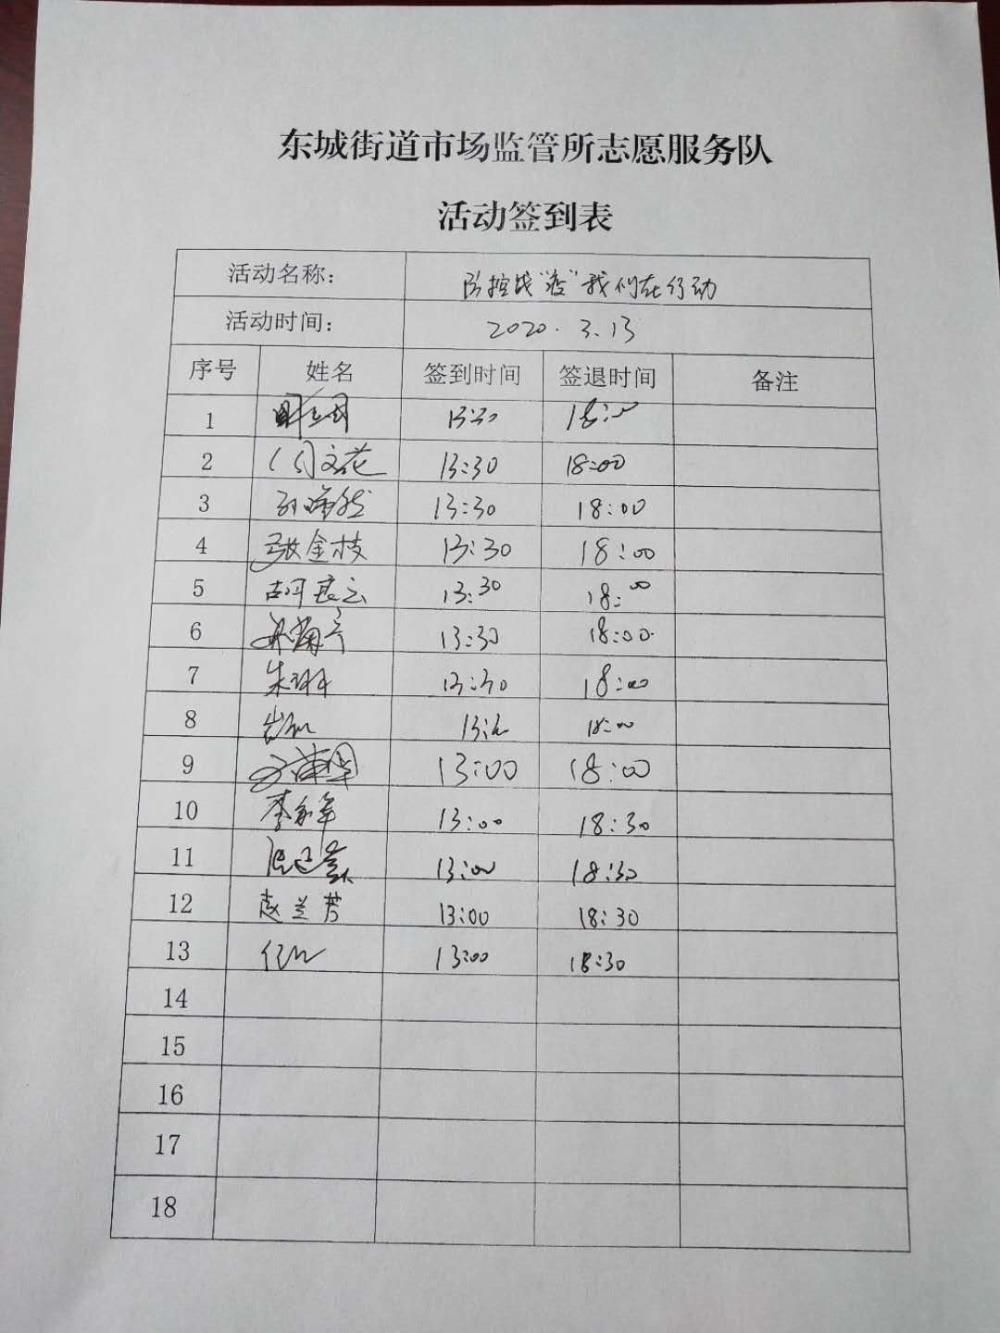 东城街道市场监管所志愿服务队
活动签到表
活动名称： 防控战“疫”我们在行动
活动时间： 2020.3.13
序号 姓名 签到时间 签退时间 备注
1 13:30 18:00
2 文花 13:30 18:00
3 13:30 18:00
4 张金枝 13:30 18:00
5 胡彦云 13:30 18:00
6 13:30 18:00
7 朱琳 13:30 18:00
8 18:00
9 13:00 18:00
10 李 军 13:00 18:30
11 13:00 18:30
12 赵兰芳 13:00 18:30
13 13:00 18:30
14
15
16
17
18